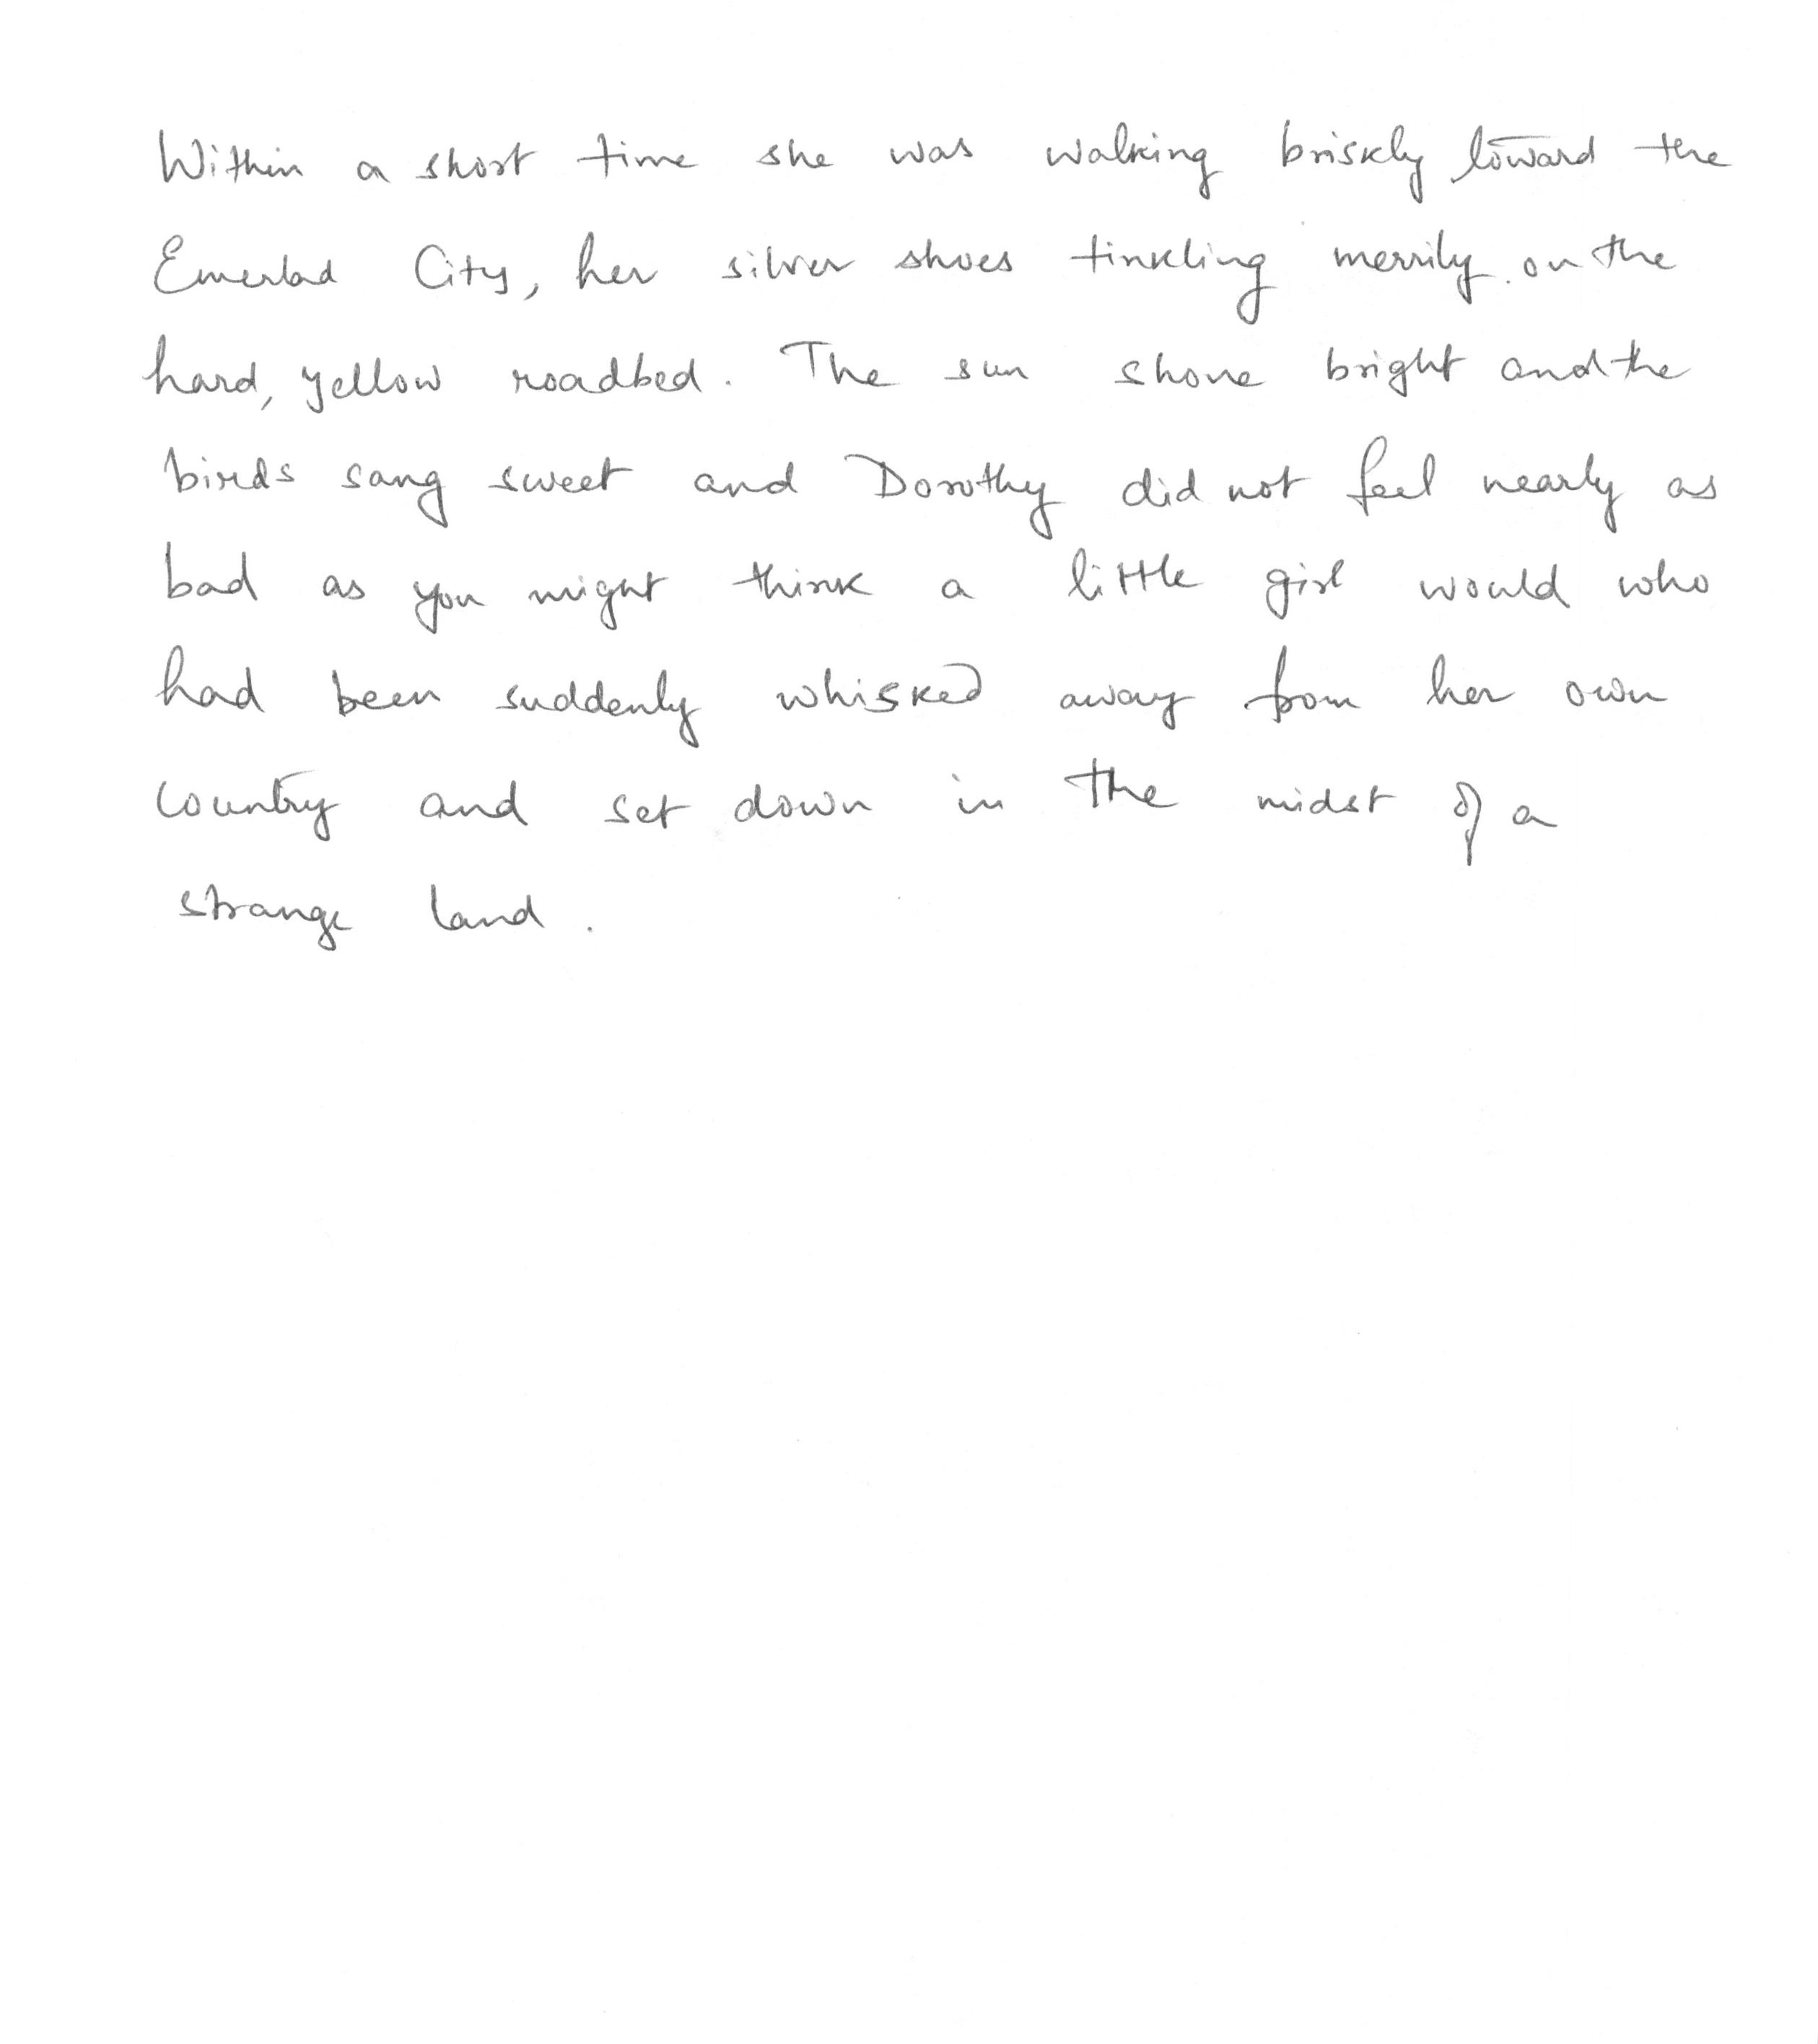 Within a short time she was walking briskly toward the
Emerlad City, her silver shoes tinkling merrily on the
hard, yellow roadbed. The sun shone bright and the
birds sang sweet and Dorothy did not feel nearly as
bad as you might think a little girl would who
had been suddenly whisked away from her own
country and set down in the midst of a
strange land.